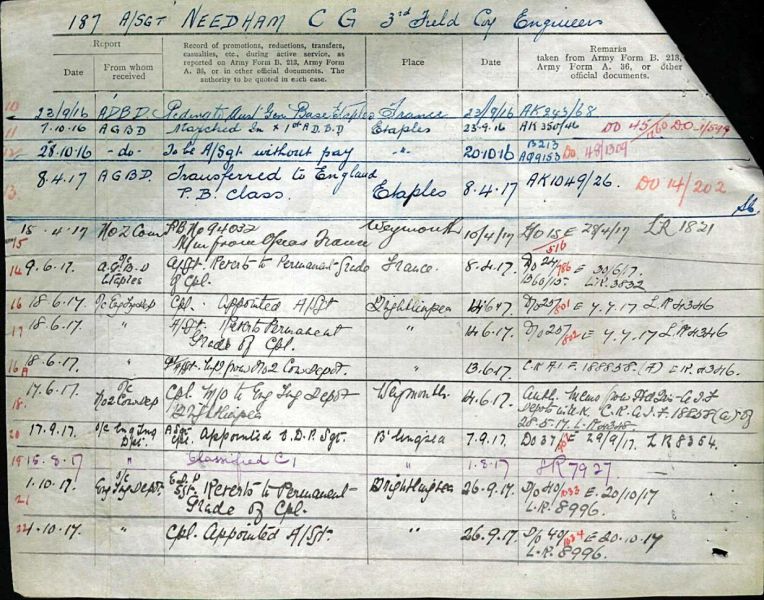 187 A/SGT NEEDHAM C G 3rd Field Coy Engineers
Report
Date
From whom received
Record of promotions, reductions, transfers, casualties, etc., during active service, as reported on Army Form B. 213, Army Form A. 36, or in other official documents. The authority to be quoted in each case.
Place
Date
Remarks
taken from Army Form B. 213, Army Form A. 36, or other official documents.
10 23/9/16 ADBD to Aust Gen Base Etaples France 23/9/16 AK243/68
11 7.10.16 AGBD Marched In 1st A.D.B.D Etaples 23.9.16 AK350/46 DO 45/
12 28.10.16 -do- To be A/Sgt without pay -"- 20.10.16 B213 DO 48/1309
13 8.4.17 AGBD. Transferred to England Etaples 8.4.17 AK1049/26. DO 14/202
P.B. Class.
15 15.4.17 No 2 Com PB No 94032 Weymouth 10/4/17 D/O 15 E 28/4/17 LR 1821
M/in from O/seas France 516
14 9.6.17. A.G.B.D Etaples A/Sgt. Reverts to Permanent Grade of Cpl. France. 8.4.17. D/o 24/786 E 30/6/17. L.R. 3832
16 18.6.17 Oc Eng Tng Dep Cpl. Appointed A/Sgt Brightlingsea 14.6.17. D/o 25/801 E 4.7.17 L.R 4346
17 18.6.17 " A/Sgt. Reverts Permanent Grade of Cpl. " 14.6.17. D/o 25/802 E 4.7.17 L.R 4346
16A 18.6.17 " T/f from No 2 Com Depot. 13.6.17 C.R A1.E. 188838 (A) L.R. 4346.
18. 17.6.17. O/c No 2 Com Dep Cpl M/O to Eng Tng Depot Brightlingsea Weymouth 14.6.17. Auth. Memo from Hd Qrs A.I.F Depots in U.K. C.R.A.I.F of 28.5.17. L.R 4346.
20 17.9.17. O/c Eng Tng Dpt. A/Sgt Cpl. Appointed E.D.P. Sgt. B'lingsea 7.9.17. Do 37 E 29/9/17. LR 8354.
19 15.8.17 " Classified C1 " 1.8.17 LR 7927
21 1.10.17 O/c Eng Tng Depot. E.D.P Sgt. Reverts to Permanent Grade of Cpl. Brightlingsea 26.9.17. D/o 40/1033 E. 20/10/17 L.R. 8996.
22 4.10.17. " Cpl. Appointed A/Sgt. " 26.9.17. D/o 40/1034 E 20.10.17 L.R. 8996.